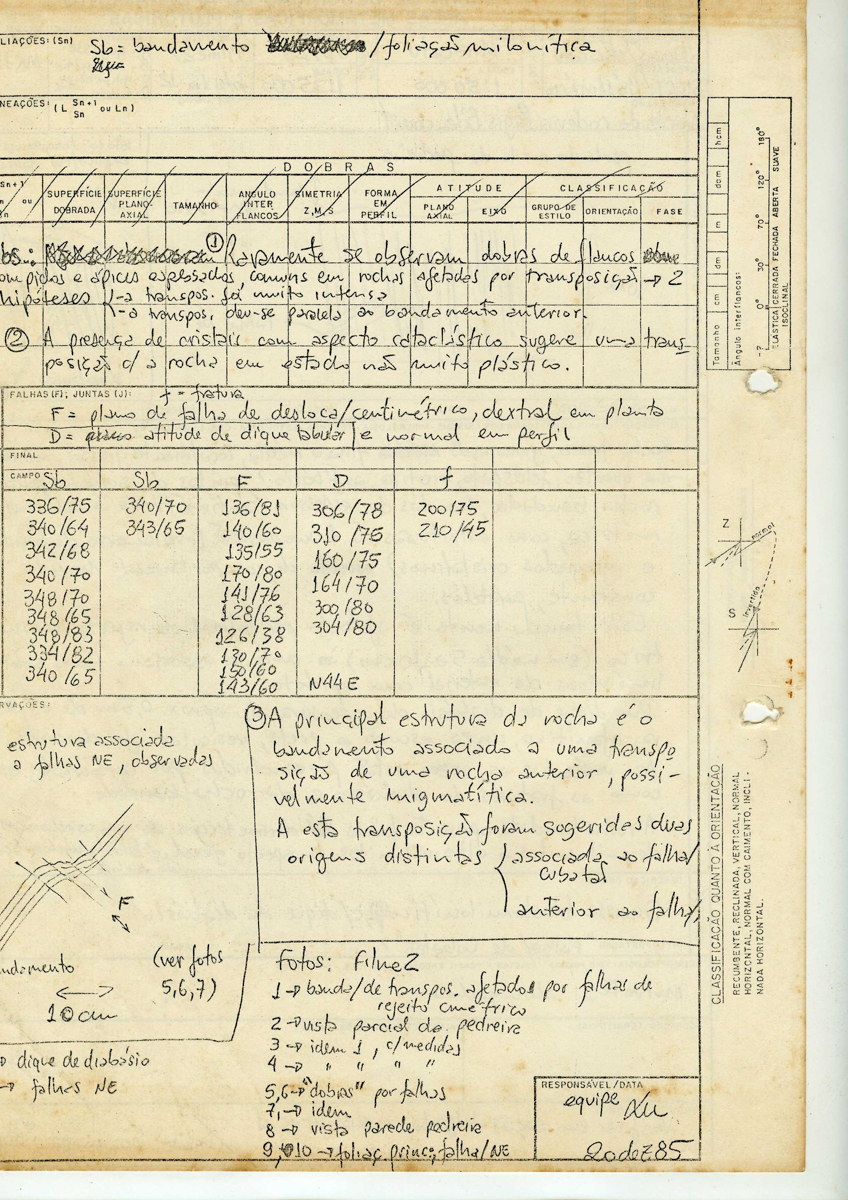 LIAÇÕES: (Sn) Sb = bandamento /foliação milonítica
NEAÇÕES: (L Sn+1 Sn ou Ln)
DOBRAS
Sn+1 ou Sn
SUPERFÍCIE DOBRADA
SUPERFÍCIE PLANO-AXIAL
TAMANHO
ANGULO INTER FLANCOS
SIMETRIA Z,M,S
FORMA EM PERFIL
ATITUDE
PLANO AXIAL
EIXO
CLASSIFICAÇÃO
GRUPO DE ESTILO
ORIENTAÇÃO
FASE
bs.: ① Raramente se observam dobras de flancos
ompidos e ápices espessados, comuns em rochas afetadas por transposição → 2
hipóteses -a transpos. foi muito intensa
-a transpos. deu-se paralela ao bandamento anterior.
② A presença de cristais com aspecto cataclástico sugere uma trans
posição c/ a rocha em estado não muito plástico.
FALHAS (F); JUNTAS (J): f = fratura
F = plano de falha de desloca/centimétrico, dextral em planta
D = atitude de dique tabular e normal em perfil
FINAL
CAMPO Sb Sb F D f
336/75 340/70 136/81 306/78 200/75
340/64 343/65 140/60 310/75 210/45
342/68 135/55 160/75
340/70 170/80 164/70
348/70 141/76 300/80
348/65 128/63 304/80
348/83 126/38
334/82 130/70
340/65 150/60
143/60 N44E
RVAÇÕES:
estrutura associada
a falhas NE, observadas
F
ndamento
10cm
(ver fotos
5,6,7)
→ dique de diabásio
→ falhas NE
③ A principal estrutura da rocha é o
bandamento associado a uma transpo
sição de uma rocha anterior, possi-
velmente migmatítica.
A esta transposição foram sugeridas duas
origens distintas associada ao falha/
cubatão
anterior ao falha/
Fotos: Filme 2
1→ banda/de transpos. afetados por falhas de
rejeito cmétrico
2→ vista parcial da pedreira
3→ idem 1, c/medidas
4→ " " "
5,6→ "dobras" por falhas
7,→ idem
8→ vista parede pedreira
9, 10→ foliaç. princ; falha/NE
RESPONSÁVEL/DATA
equipe
20dez85
Tamanho cm dm m dam hcm
Ângulo interflancos: -? 0° 30° 70° 120° 180°
ELÁSTICA CERRADA FECHADA ABERTA SUAVE
ISOCLINAL
Z
normal
S
invertido
CLASSIFICAÇÃO QUANTO À ORIENTAÇÃO
RECUMBENTE, RECLINADA, VERTICAL, NORMAL
HORIZONTAL, NORMAL COM CAIMENTO, INCLI-
NADA HORIZONTAL.